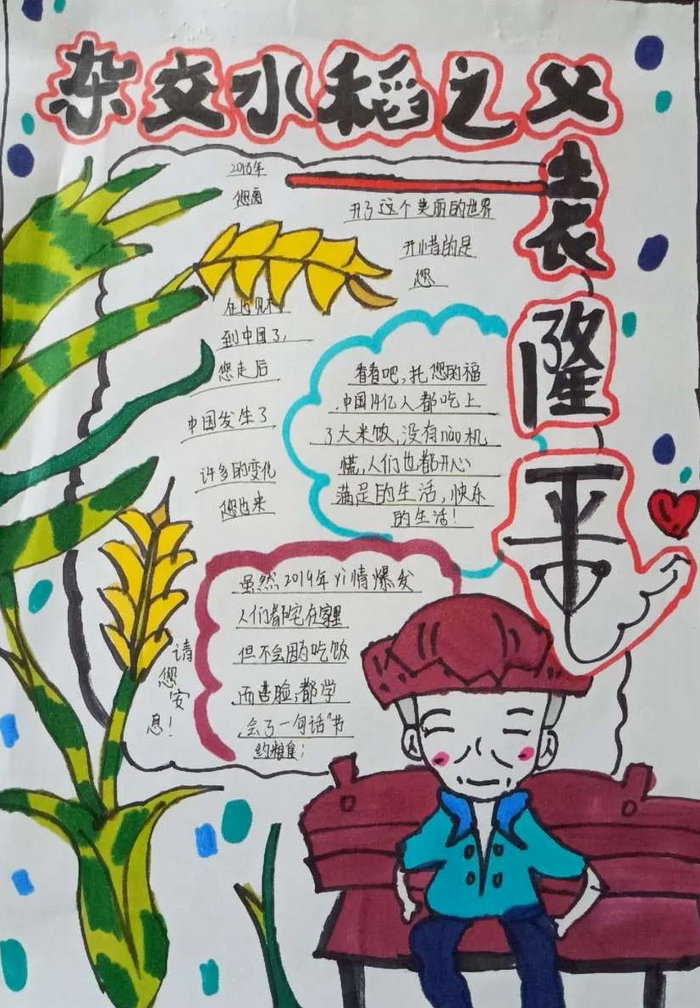 杂交水稻之父
袁隆平
2018年
您离
开了这个美丽的世界
可惜的是
您
在也见不
到中国了,
您走后
中国发生了
许多的变化
您也来
看看吧,托您的福
中国14亿人都吃上
了大米饭,没有nāo机
慌,人们也都开心
满足的生活,快乐
的生活!
虽然2019年yì情爆发
人们都宅在家里
但不会因为吃饭
而
都学
会了一句话"节
约粮食;
请您安息!